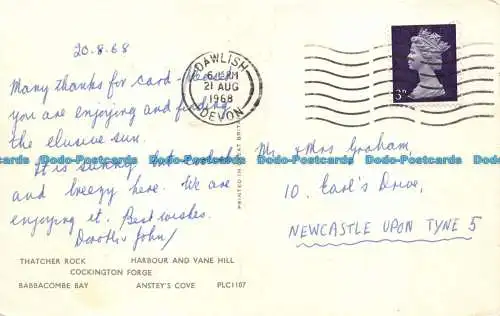 20.8.68
Many thanks for card -
you are enjoying and finding
the elusive sun.
It is sunny, but
and breezy here. We are
enjoying it. Best wishes.
Dorothy & John
THATCHER ROCK HARBOUR AND VANE HILL
COCKINGTON FORGE
BABBACOMBE BAY ANSTEY'S COVE PLC1107
DAWLISH
21 AUG
1968
DEVON
PRINTED IN GREAT BRITAIN
3D
Mr. & Mrs Graham,
10, Earl's Drive,
NEWCASTLE UPON TYNE 5
Dodo-Postcards Dodo-Postcards Dodo-Postcards Dodo-Postcards